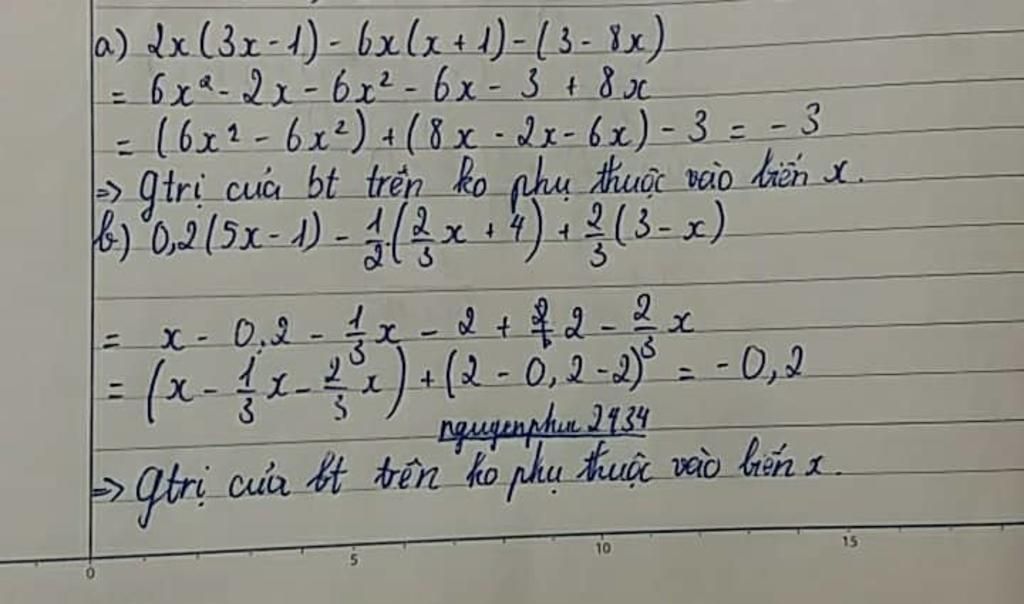 a) 2x(3x-1) - 6x(x+1) - (3-8x)
= 6x² - 2x - 6x² - 6x - 3 + 8x
= (6x² - 6x²) + (8x - 2x - 6x) - 3 = -3
=> gtrị của bt trên ko phụ thuộc vào biến x.
b) 0,2(5x-1) - 1/2(2/3x + 4) + 2/3(3-x)
= x - 0,2 - 1/3x - 2 + 2 - 2/3x
= (x - 1/3x - 2/3x) + (2 - 0,2 - 2) = -0,2
nguyenphu 2434
=> gtrị của bt trên ko phụ thuộc vào biến x.
0 5 10 15